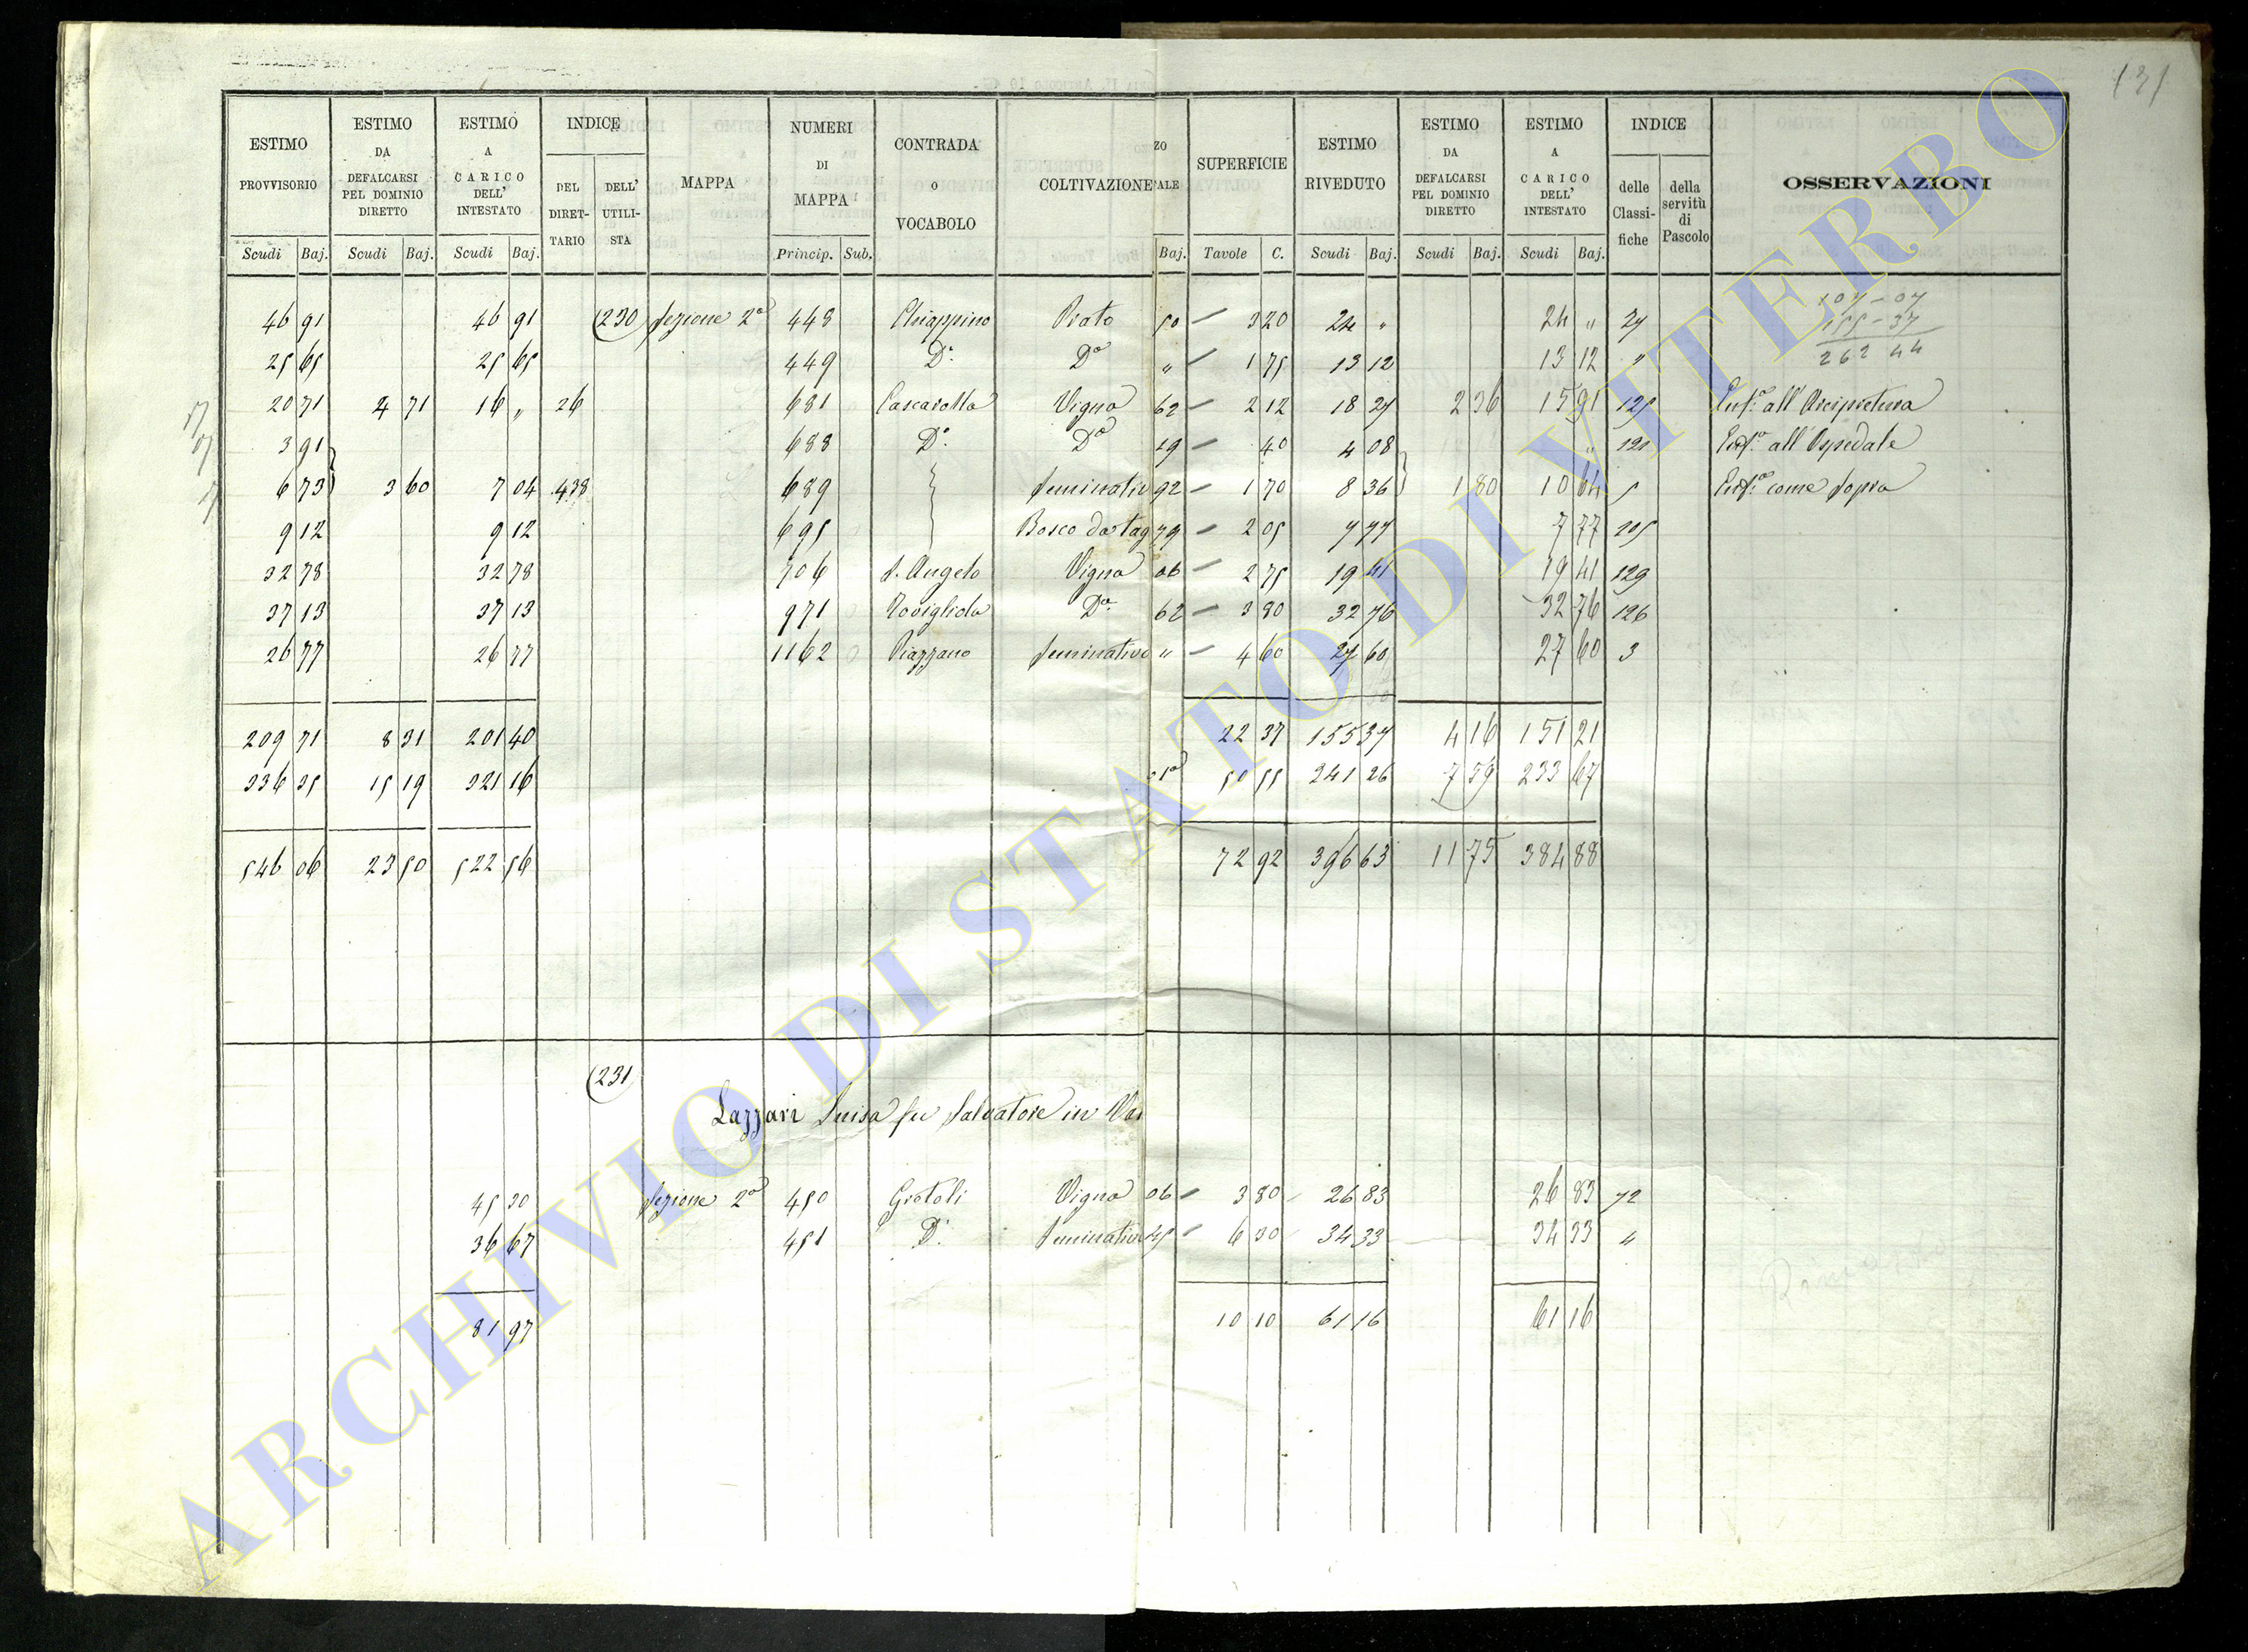 131
ESTIMO PROVVISORIO | ESTIMO DA DEFALCARSI PEL DOMINIO DIRETTO | ESTIMO A CARICO DELL' INTESTATO | INDICE | MAPPA | NUMERI DI MAPPA | CONTRADA O VOCABOLO | COLTIVAZIONE | ZO ALE | SUPERFICIE | ESTIMO RIVEDUTO | ESTIMO DA DEFALCARSI PEL DOMINIO DIRETTO | ESTIMO A CARICO DELL' INTESTATO | INDICE | OSSERVAZIONI
DEL DIRETTARIO | DELL' UTILISTA | delle Classifiche | della servitù di Pascolo
Scudi | Baj. | Scudi | Baj. | Scudi | Baj. | Princip. | Sub. | Baj. | Tavole | C. | Scudi | Baj. | Scudi | Baj. | Scudi | Baj.
107-07
155-37
262 44
46 91 | 46 91 | (230) | Sezione 2a | 448 | Chiappino | Prato | 50 | - 3 20 | 24 " | 24 " | 27
25 65 | 25 65 | 449 | Do. | Do | " | - 1 75 | 13 12 | 13 12 | "
20 71 | 4 71 | 16 " | 26 | 681 | Cascarolla | Vigna | 62 | - 2 12 | 18 27 | 2 36 | 15 91 | 125 | Enfa. all' Arcipretura
3 91 | 688 | Do. | Do | 29 | - 40 | 4 08 | " | 121 | Enfa. all' Ospedale
6 73 | 3 60 | 7 04 | 438 | 689 | Seminativo | 92 | - 1 70 | 8 36 | 1 80 | 10 64 | 5 | Enfa. come sopra
9 12 | 9 12 | 695 | Bosco da tag | 79 | - 2 05 | 7 77 | 7 77 | 105
32 78 | 32 78 | 706 | S. Angelo | Vigna | 06 | - 2 75 | 19 41 | 19 41 | 129
37 13 | 37 13 | 971 | Rovigliola | Do. | 62 | - 3 80 | 32 76 | 32 76 | 126
26 77 | 26 77 | 1162 | Piazzano | Seminativo | " | - 4 60 | 27 60 | 27 60 | 3
209 71 | 8 31 | 201 40 | 22 37 | 155 37 | 4 16 | 151 21
336 35 | 15 19 | 321 16 | 50 55 | 241 26 | 7 59 | 233 67
546 06 | 23 50 | 522 56 | 72 92 | 396 63 | 11 75 | 384 88
(231)
Lazzari Luisa fu Salvatore in
45 30 | Sezione 2a | 450 | Grotoli | Vigna | 06 | - 3 80 | 26 83 | 26 83 | 72
36 67 | 451 | Do. | Seminativo | 45 | - 6 30 | 34 33 | 34 33 | "
81 97 | 10 10 | 61 16 | 61 16
ARCHIVIO DI STATO DI VITERBO